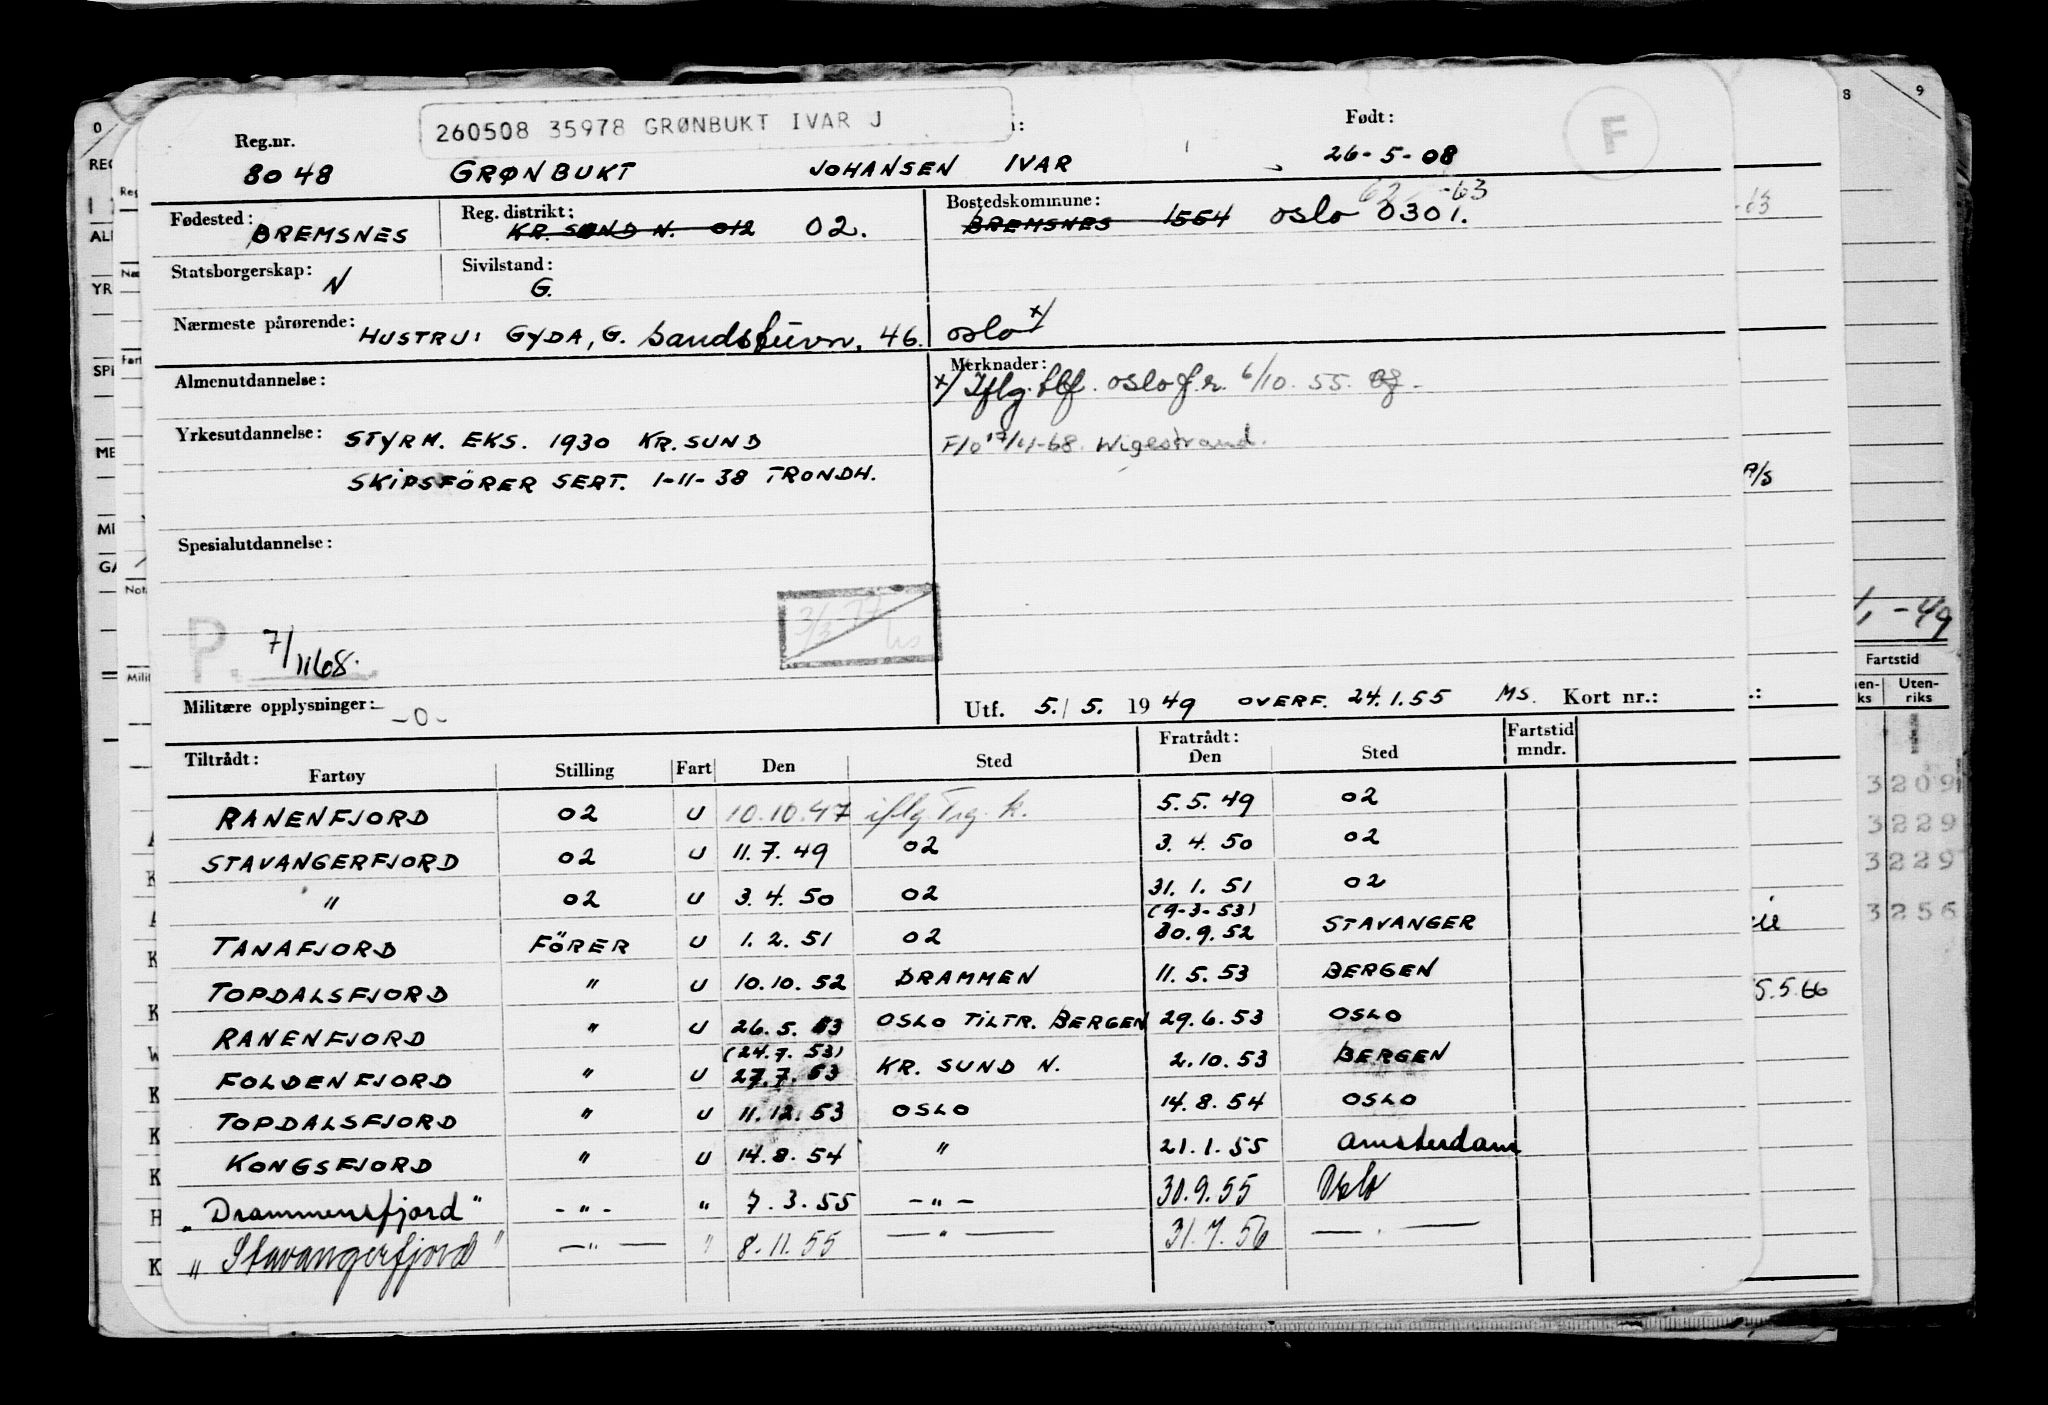 260508 35978 GRØNBUKT IVAR J
Reg.nr. Født:
8048 GRØNBUKT JOHANSEN IVAR 26-5-08
F
Fødested: BREMSNES Reg. distrikt: KR. SUND N. 012 02. Bostedskommune: BREMSNES 1554 Oslo 0301. 62 -63
Statsborgerskap: N Sivilstand: G.
Nærmeste pårørende: HUSTRU: GYDA, G. Sandstuvn. 46. Oslo x/
Almenutdannelse: Merknader: x/ Iflg. Oslo f.r. 6/10. 55.
Yrkesutdannelse: STYRM. EKS. 1930 KR. SUND Wigestrand.
SKIPSFÖRER SERT. 1-11-38 TRONDH.
Spesialutdannelse:
3/3-77
P. 7/1168.
Militære opplysninger: -0- Utf. 5./5. 1949 OVERF. 24.1.55 MS. Kort nr.:
Tiltrådt: Fratrådt: Fartstid
Fartøy Stilling Fart Den Sted Den Sted mndr.
RANENFJORD 02 U 10.10.47 iflg. Trg. k. 5.5.49 02
STAVANGERFJORD 02 U 11.7.49 02 3.4.50 02
" 02 U 3.4.50 02 31.1.51 02
(9-3-53)
TANAFJORD FÖRER U 1.2.51 02 30.9.52 STAVANGER
TOPDALSFJORD " U 10.10.52 DRAMMEN 11.5.53 BERGEN
RANENFJORD " U 26.5.53 OSLO TILTR. BERGEN 29.6.53 OSLO
(24.7.53)
FOLDENFJORD " U 27.7.53 KR. SUND N. 2.10.53 BERGEN
TOPDALSFJORD " U 11.12.53 OSLO 14.8.54 OSLO
KONGSFJORD " U 14.8.54 " 21.1.55 Amsterdam
"Drammensfjord" -"- " 7.3.55 -"- 30.9.55 Oslo
"Stavangerfjord" -"- " 8.11.55 -"- 31.7.56
0 8 9
A/S
1/1-49
Fartstid
Uten-
riks
3209
3229
3229
3256
5.5.66